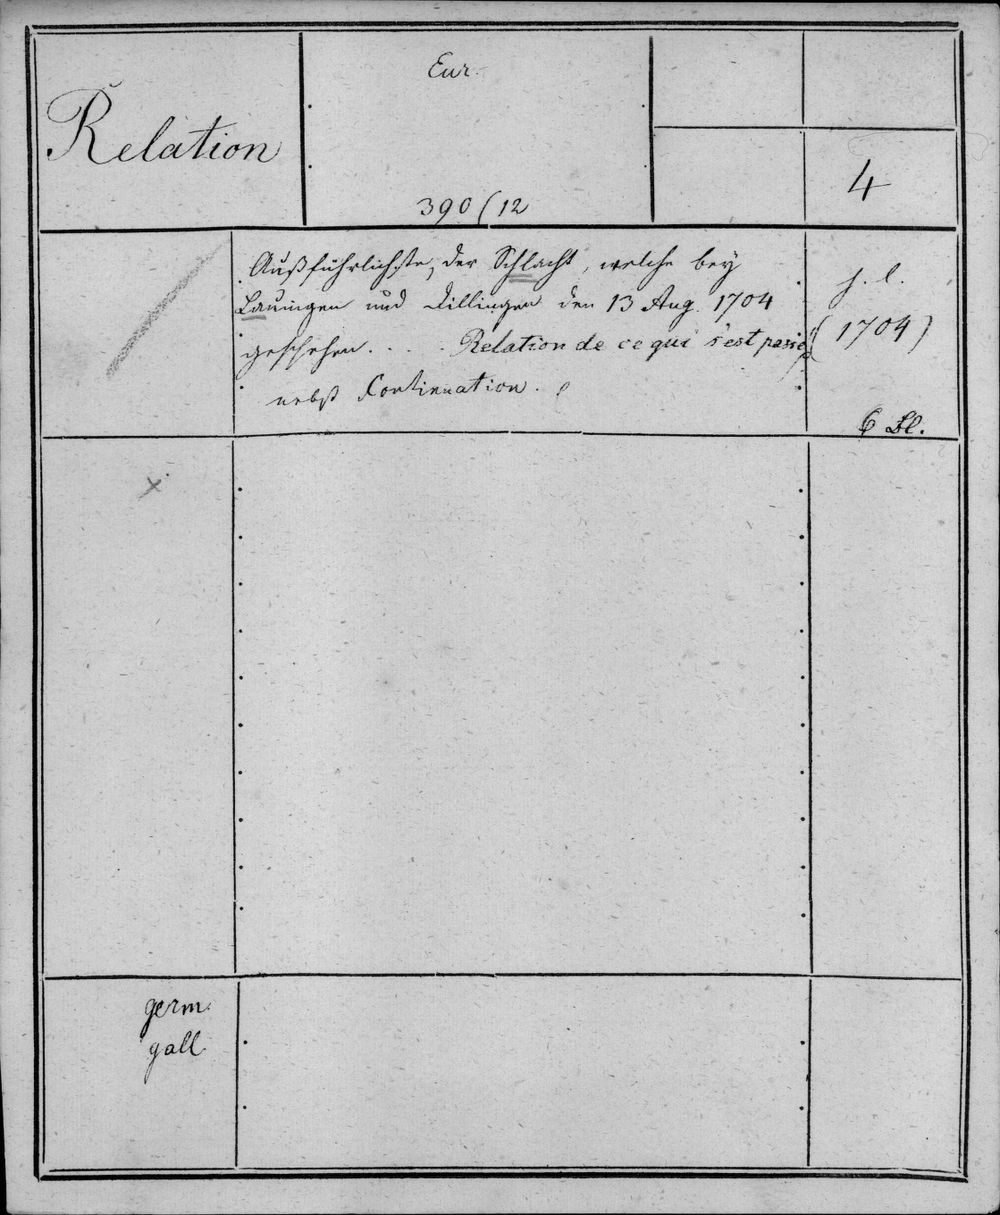 Relation
Eur.
390(12
4
Außführlichste, der Schlacht, welche bey
Lauingen und Dillingen den 13 Aug. 1704
geschehen. . . . Relation de ce qui s'est passé
nebst Continuation.
s. l.
(1704)
6 Bl.
germ.
gall.